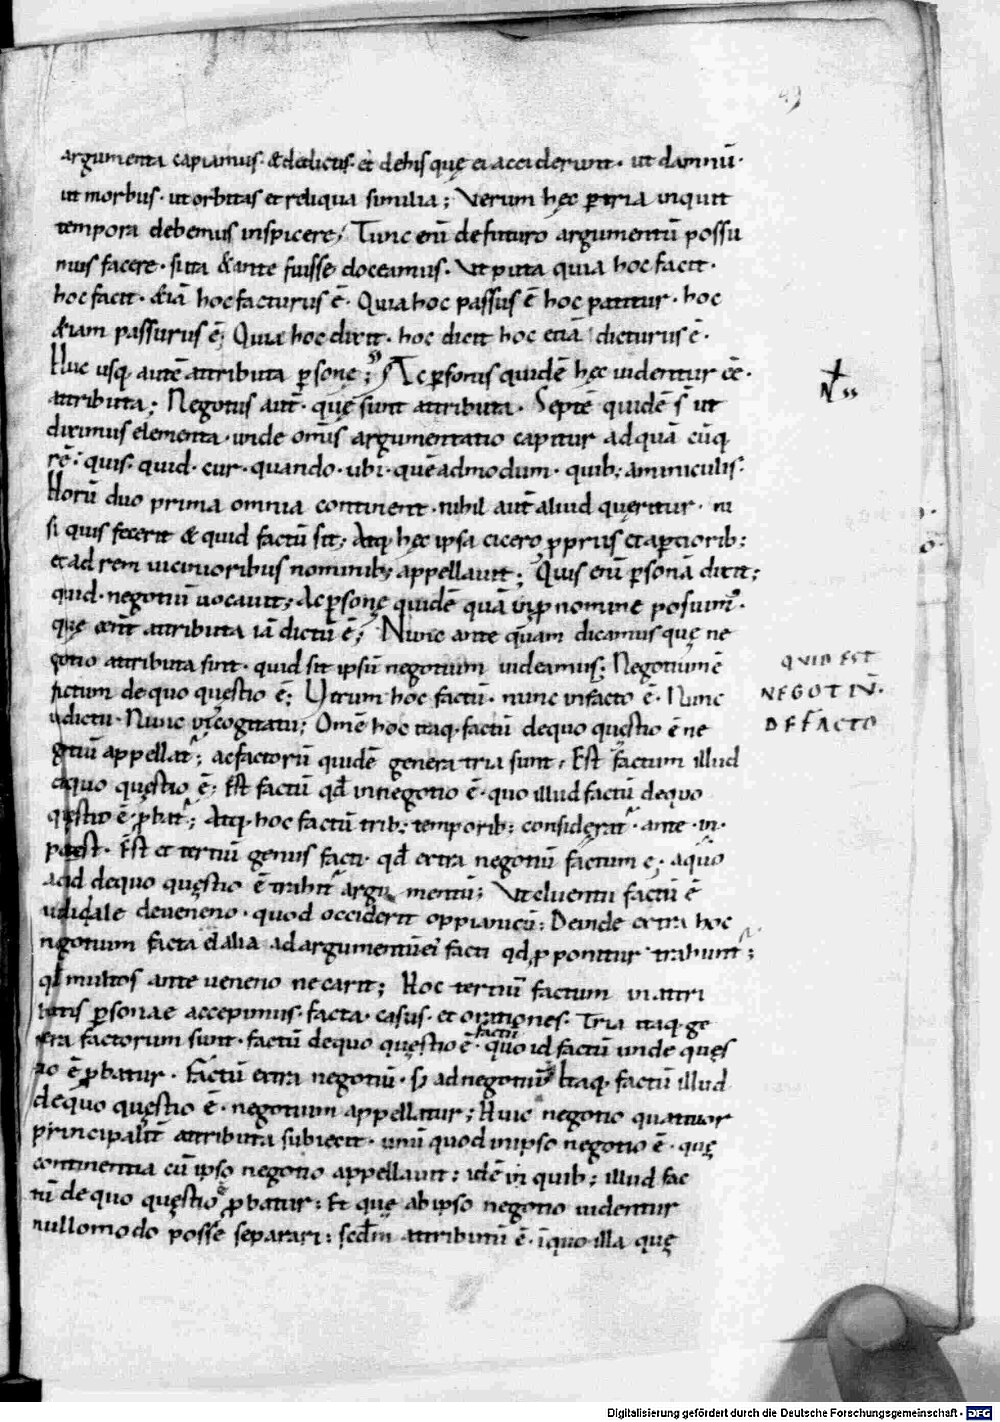 49
argumenta capiamus· & dedictis· et dehis quę ei acciderunt· ut damnū·
ut morbus· ut orbitas et reliqua similia; Verum hęc p tria inquit
tempora debemus inspicere; Tunc enī de futuro argumentū possu
mus facere· si ita & ante fuisse doceamus· Ut puta quia hoc facit·
hoc facit· & iā hoc facturus ē· Quia hoc passus ē hoc patitur· hoc
&iam passurus ē; Quia hoc dixit· hoc dicit hoc etiā dicturus ē·
Huc usq, autē attributa psonę; Ac psonis quidē hęc uidentur ēē·
attributa; Negotiis aut̄· quę sunt attributa· Septē quidē s̄ ut
diximus elementa· unde om̄is argumentatio capitur ad quā cūq
rē· quis· quid· cur· quando· ubi· quēadmodum· quib; aminiculis·
Horū duo prima omnia continent· nihil aut̄ aliud quęritur· ni
si quis fecerit & quid factū sit; Atq, hęc ipsa cicero pprius et aptiorib;
et ad rem uicinioribus nominib; appellauit; Quis enī psonā dicit;
quid· negotiū uocauit; Ac psonę quidē quā
quę
attributa iā dictū ē; Nunc ante quam dicamus quę ne
gotio attributa sint· quid sit ipsū negotium uideamus; Negotium ē
factum de quo quęstio ē; Utrum hoc factū· nunc in facto ē· Nunc
in dictu· Nunc in cogitatu; Omē hoc itaq, factū dequo quęstio ē ne
gotiū appellat̄; ac factorū quidē genera tria sunt; Est factum illud
dequo quęstio ē; Est factū qd̄ in negotio ē· quo illud factū dequo
quęstio ē· pbat̄; Atq, hoc factū trib; temporib; considerat̄· ante· in·
post· Est et tertiū genus facti· qd̄ extra negotiū factum ē· a quo
ad id dequo quęstio ē trahit̄ argumentū; Ut cluentii factū ē
deueneno· quod occiderit oppianicū; Deinde extra hoc
negotium facta et alia ad argumentū ei facti qd pponitur trahunt̄;
qd̄ multos ante ueneno necarit; Hoc tertiū factum in attri
butis psonae accepimus· facta· casus· et orationes· Tria itaq, ge
nera factorum sunt· factū dequo quęstio ē· factū quo id factū unde quęs
tio ē pbatur· factū extra negotiū· s; ad negotiū Itaq, factū illud
dequo quęstio ē· negotium appellatur; Huic negotio quattuor
principalit̄ attributa subiecit· unū quod in ipso negotio ē· quę
continentia cū ipso negotio appellauit; idē in quib; illud fac
tū dequo quęstio pbatur; Et quę ab ipso negotio uidentur
nullomodo posse separari; sed̄m attributū ē· in quo illa quę
QUID EST
NEGOTIŪ·
DE FACTO
Digitalisierung gefördert durch die Deutsche Forschungsgemeinschaft - DFG